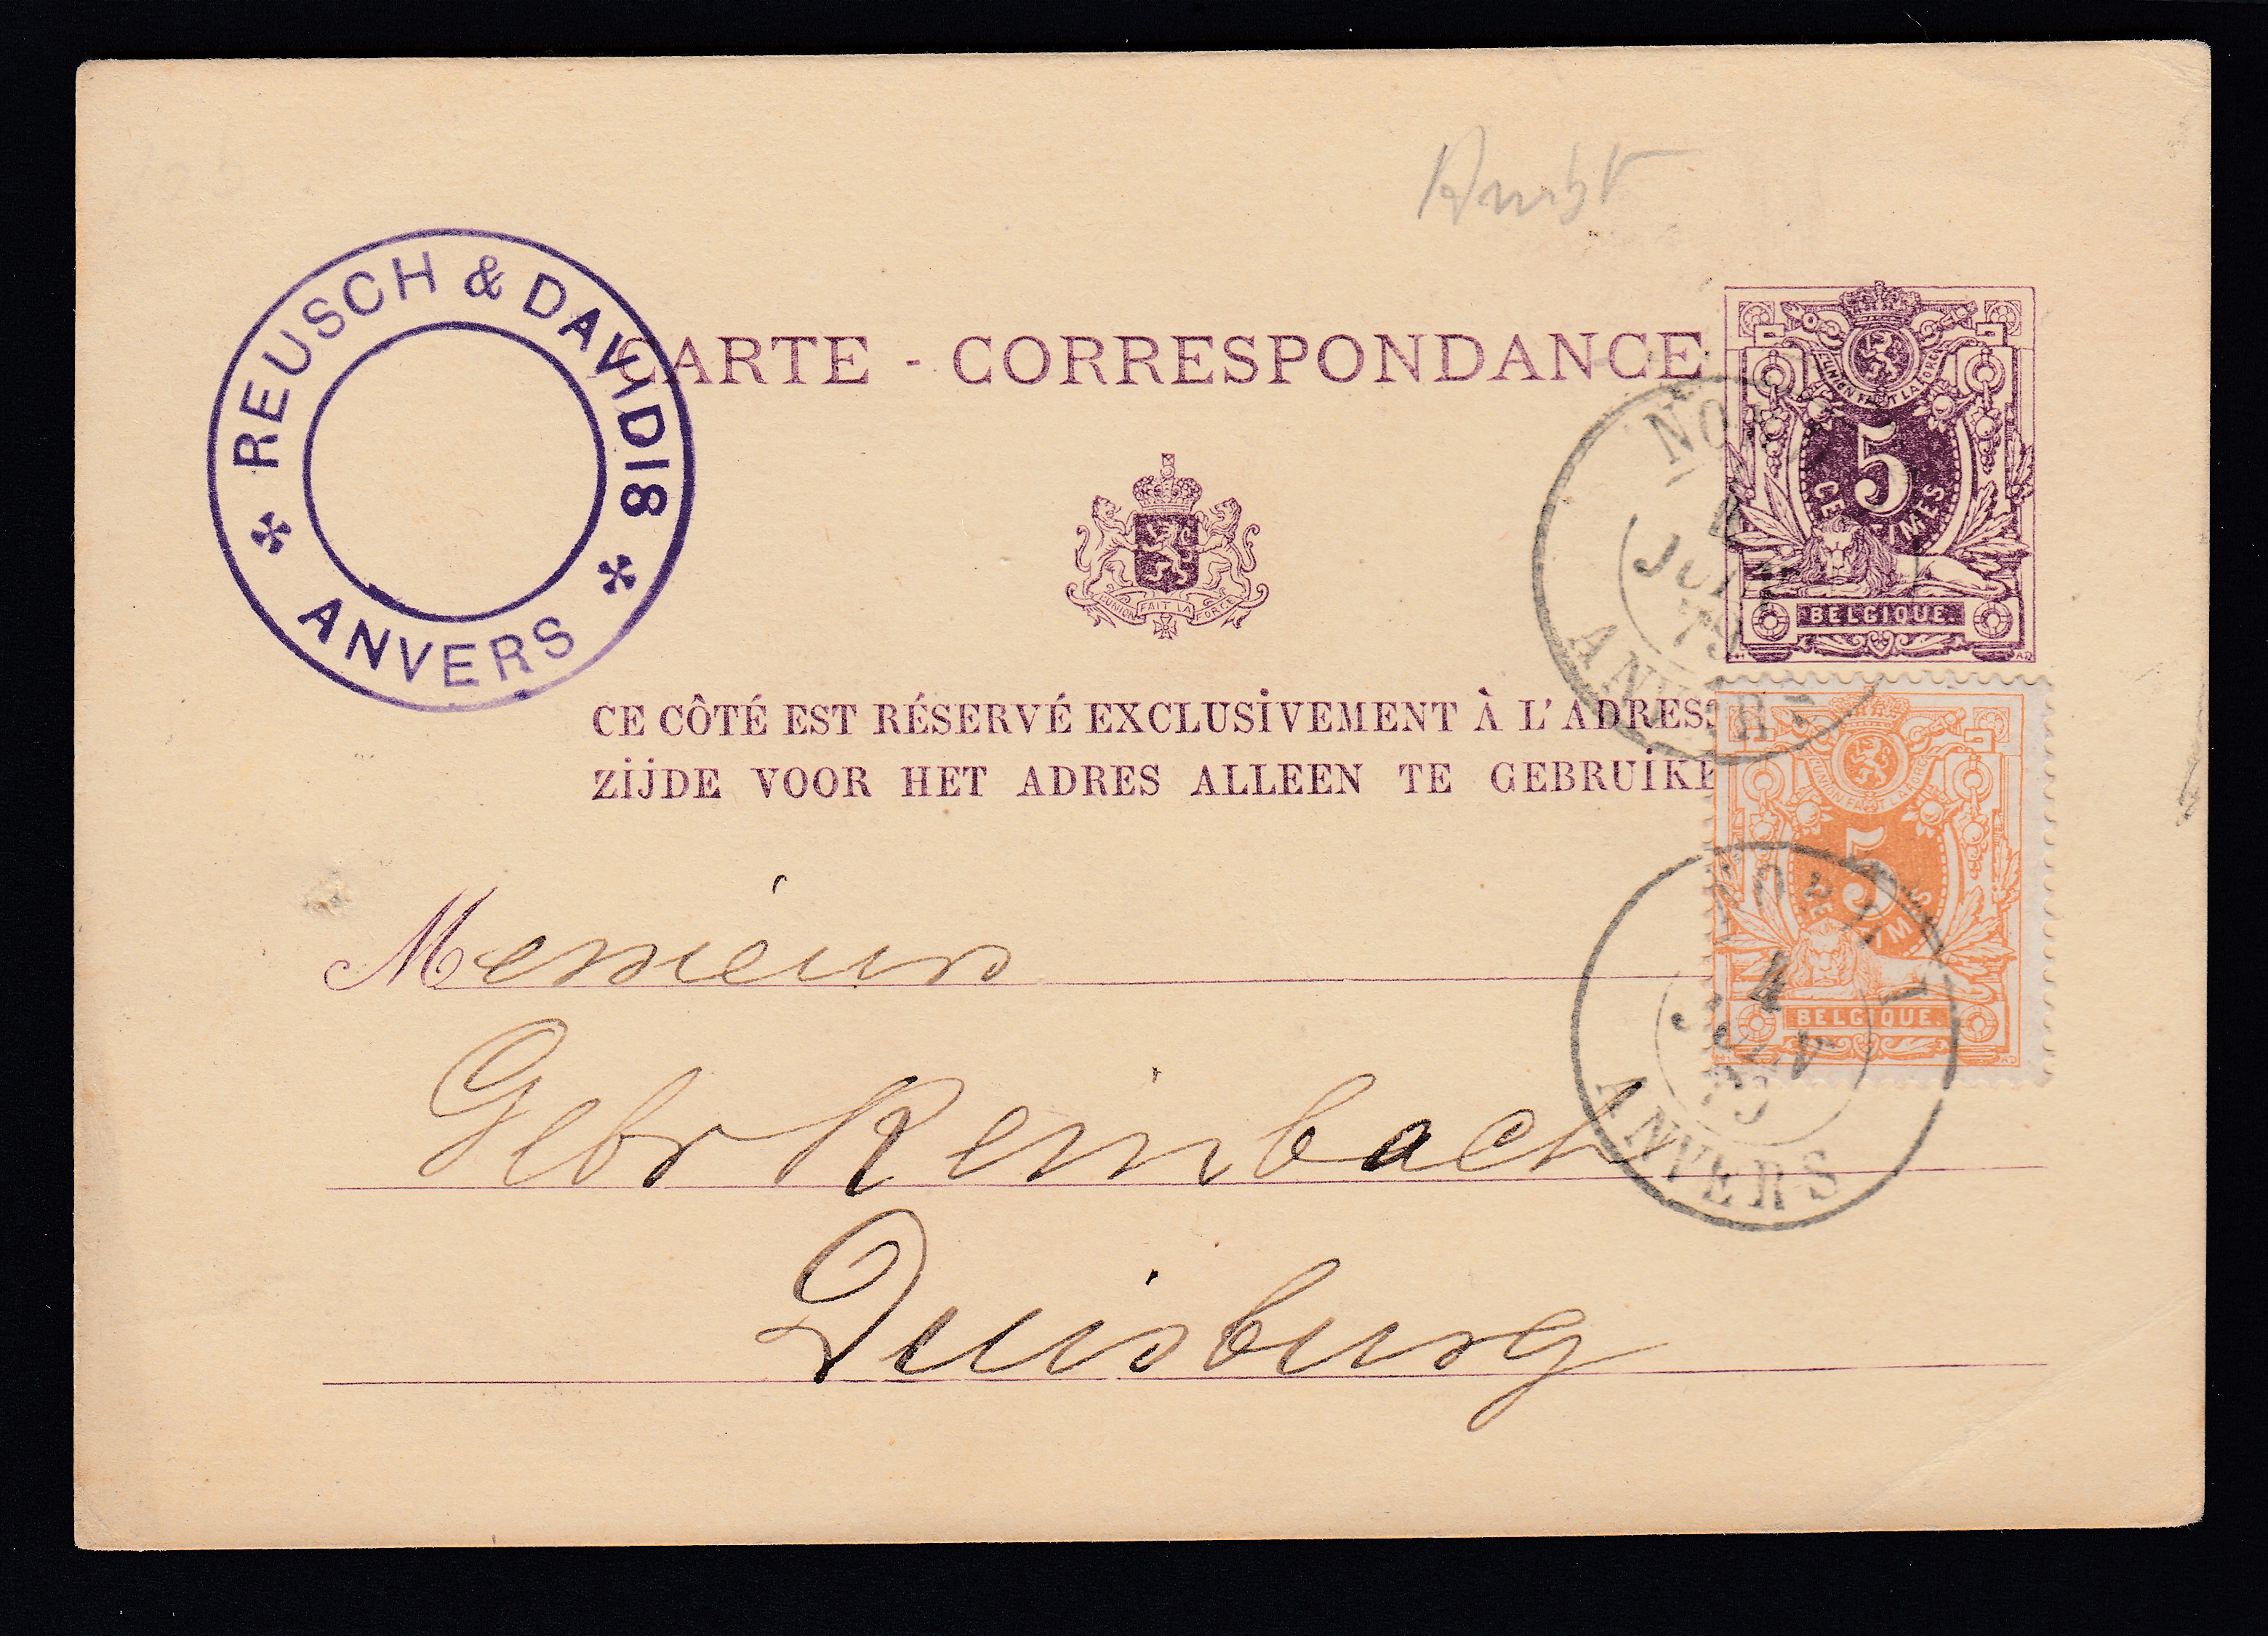 REUSCH & DAVIDS
ANVERS
CARTE - CORRESPONDANCE
L'UNION FAIT LA FORCE
5
CE MES
BELGIQUE
L'UNION FAIT LA FORCE
CE CÔTÉ EST RÉSERVÉ EXCLUSIVEMENT À L'ADRESS
ZIJDE VOOR HET ADRES ALLEEN TE GEBRUIKE
JUIN
79
ANVERS
5
CE MES
BELGIQUE
4
JUIN
79
ANVERS
Messieurs
Gebr Reinbach
Duisburg